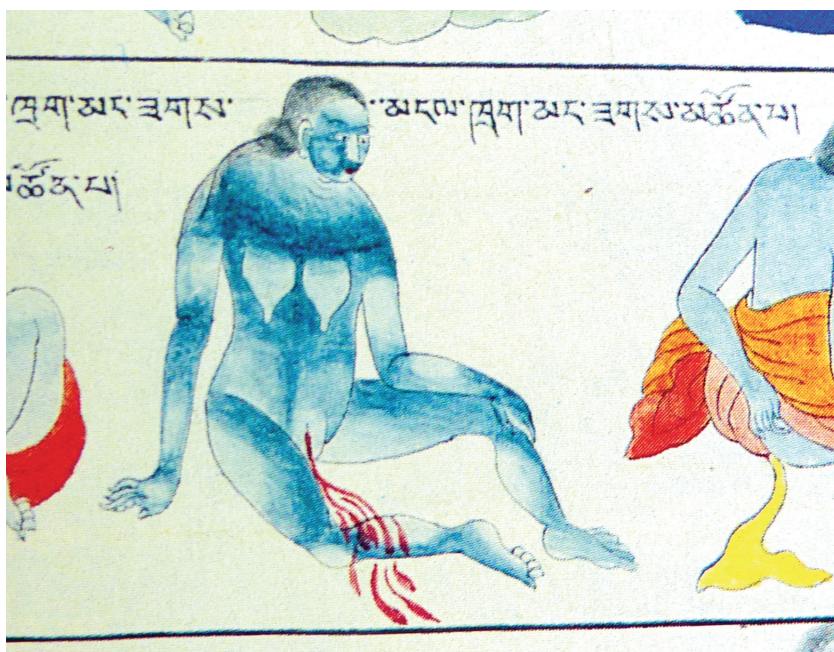 ཁྲག་མང་ཟགས་
མཚོན་པ།
མངལ་ཁྲག་མང་ཟགས་མཚོན་པ།